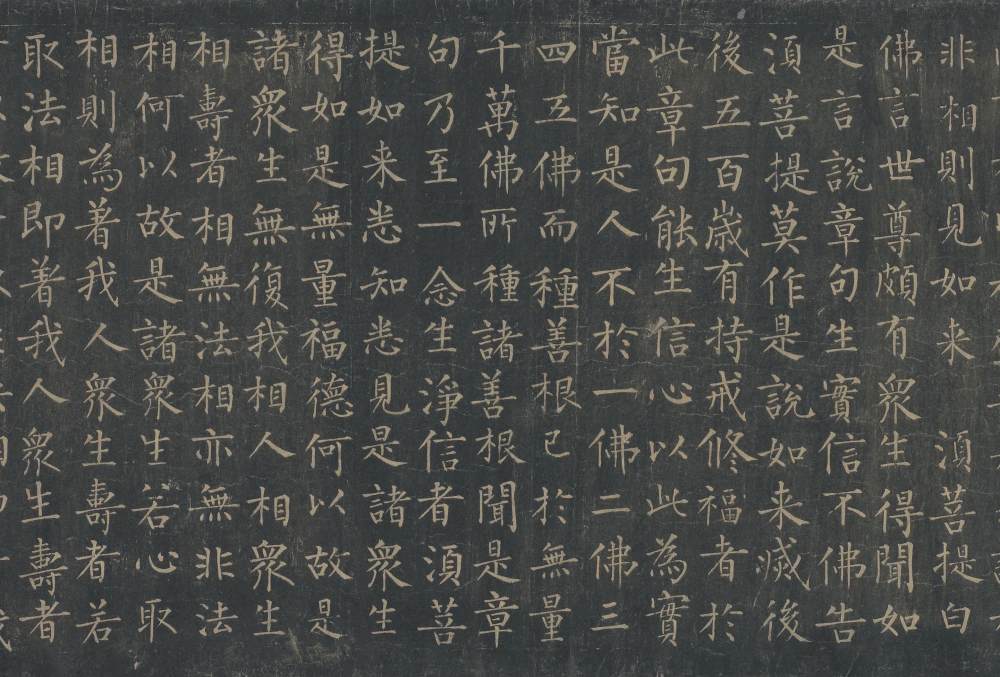 非相則見如来　須菩提白
佛言世尊頗有衆生得聞如
是言説章句生實信不佛告
須菩提莫作是説如来滅後
後五百歲有持戒修福者於
此章句能生信心以此為實
當知是人不於一佛二佛三
四五佛而種善根已於無量
千萬佛所種諸善根聞是章
句乃至一念生淨信者須菩
提如来悉知悉見是諸衆生
得如是無量福德何以故是
諸衆生無復我相人相衆生
相壽者相無法相亦無非法
相何以故是諸衆生若心取
相則為著我人衆生壽者若
取法相即著我人衆生壽者